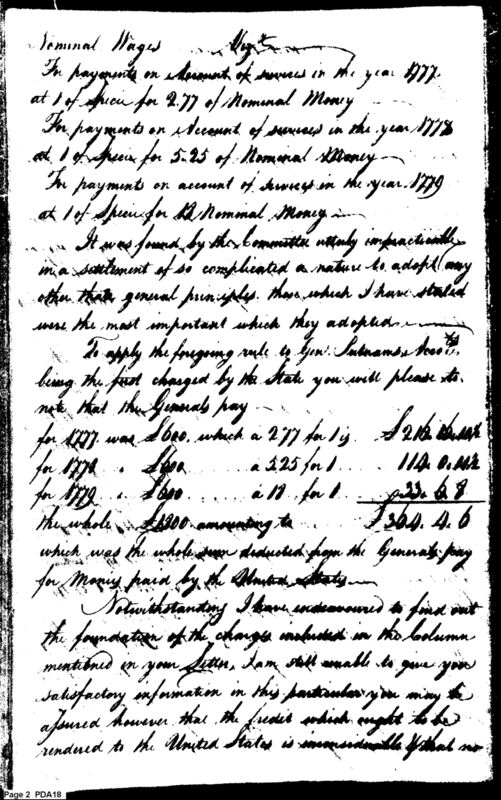 Nominal Wages Vizt
For payments on Account of services in the year 1777
at 1 of Specie for 2.77 of Nominal Money
For payments on Account of services in the year 1778
at 1 of Specie for 5.25 of Nominal Money
For payment on account of services in the year 1779
at 1 of Specie for 18 Nominal Money
It was found by the Committee utterly impracticable
in a settlement of so complicated a nature to adopt any
other than general principles. those which I have stated
were the most important which they adopted
To apply the foregoing rule to Genl Putnams Acco
being the first charged by the State you will please to
note that the Generals pay
for 1777 was £600. which a 2.77 for 1 is £216.
for 1778 " £600 a 5.25 for 1 114. 0.
for 1779 " £600 a 18 for 1 33. 6. 8
the whole £1800 amounting to £364. 4. 6
which was the whole sum deducted from the Generals pay
for Money paid by the United States
Notwithstanding I have endeavoured to find out
the foundation of the charges included in the Column
mentioned in your Letter, I am still unable to give you
satisfactory information in this particular you may be
assured however that the credit which ought to be
rendered to the United States is inconsiderable if that no
Page 2 PDA18